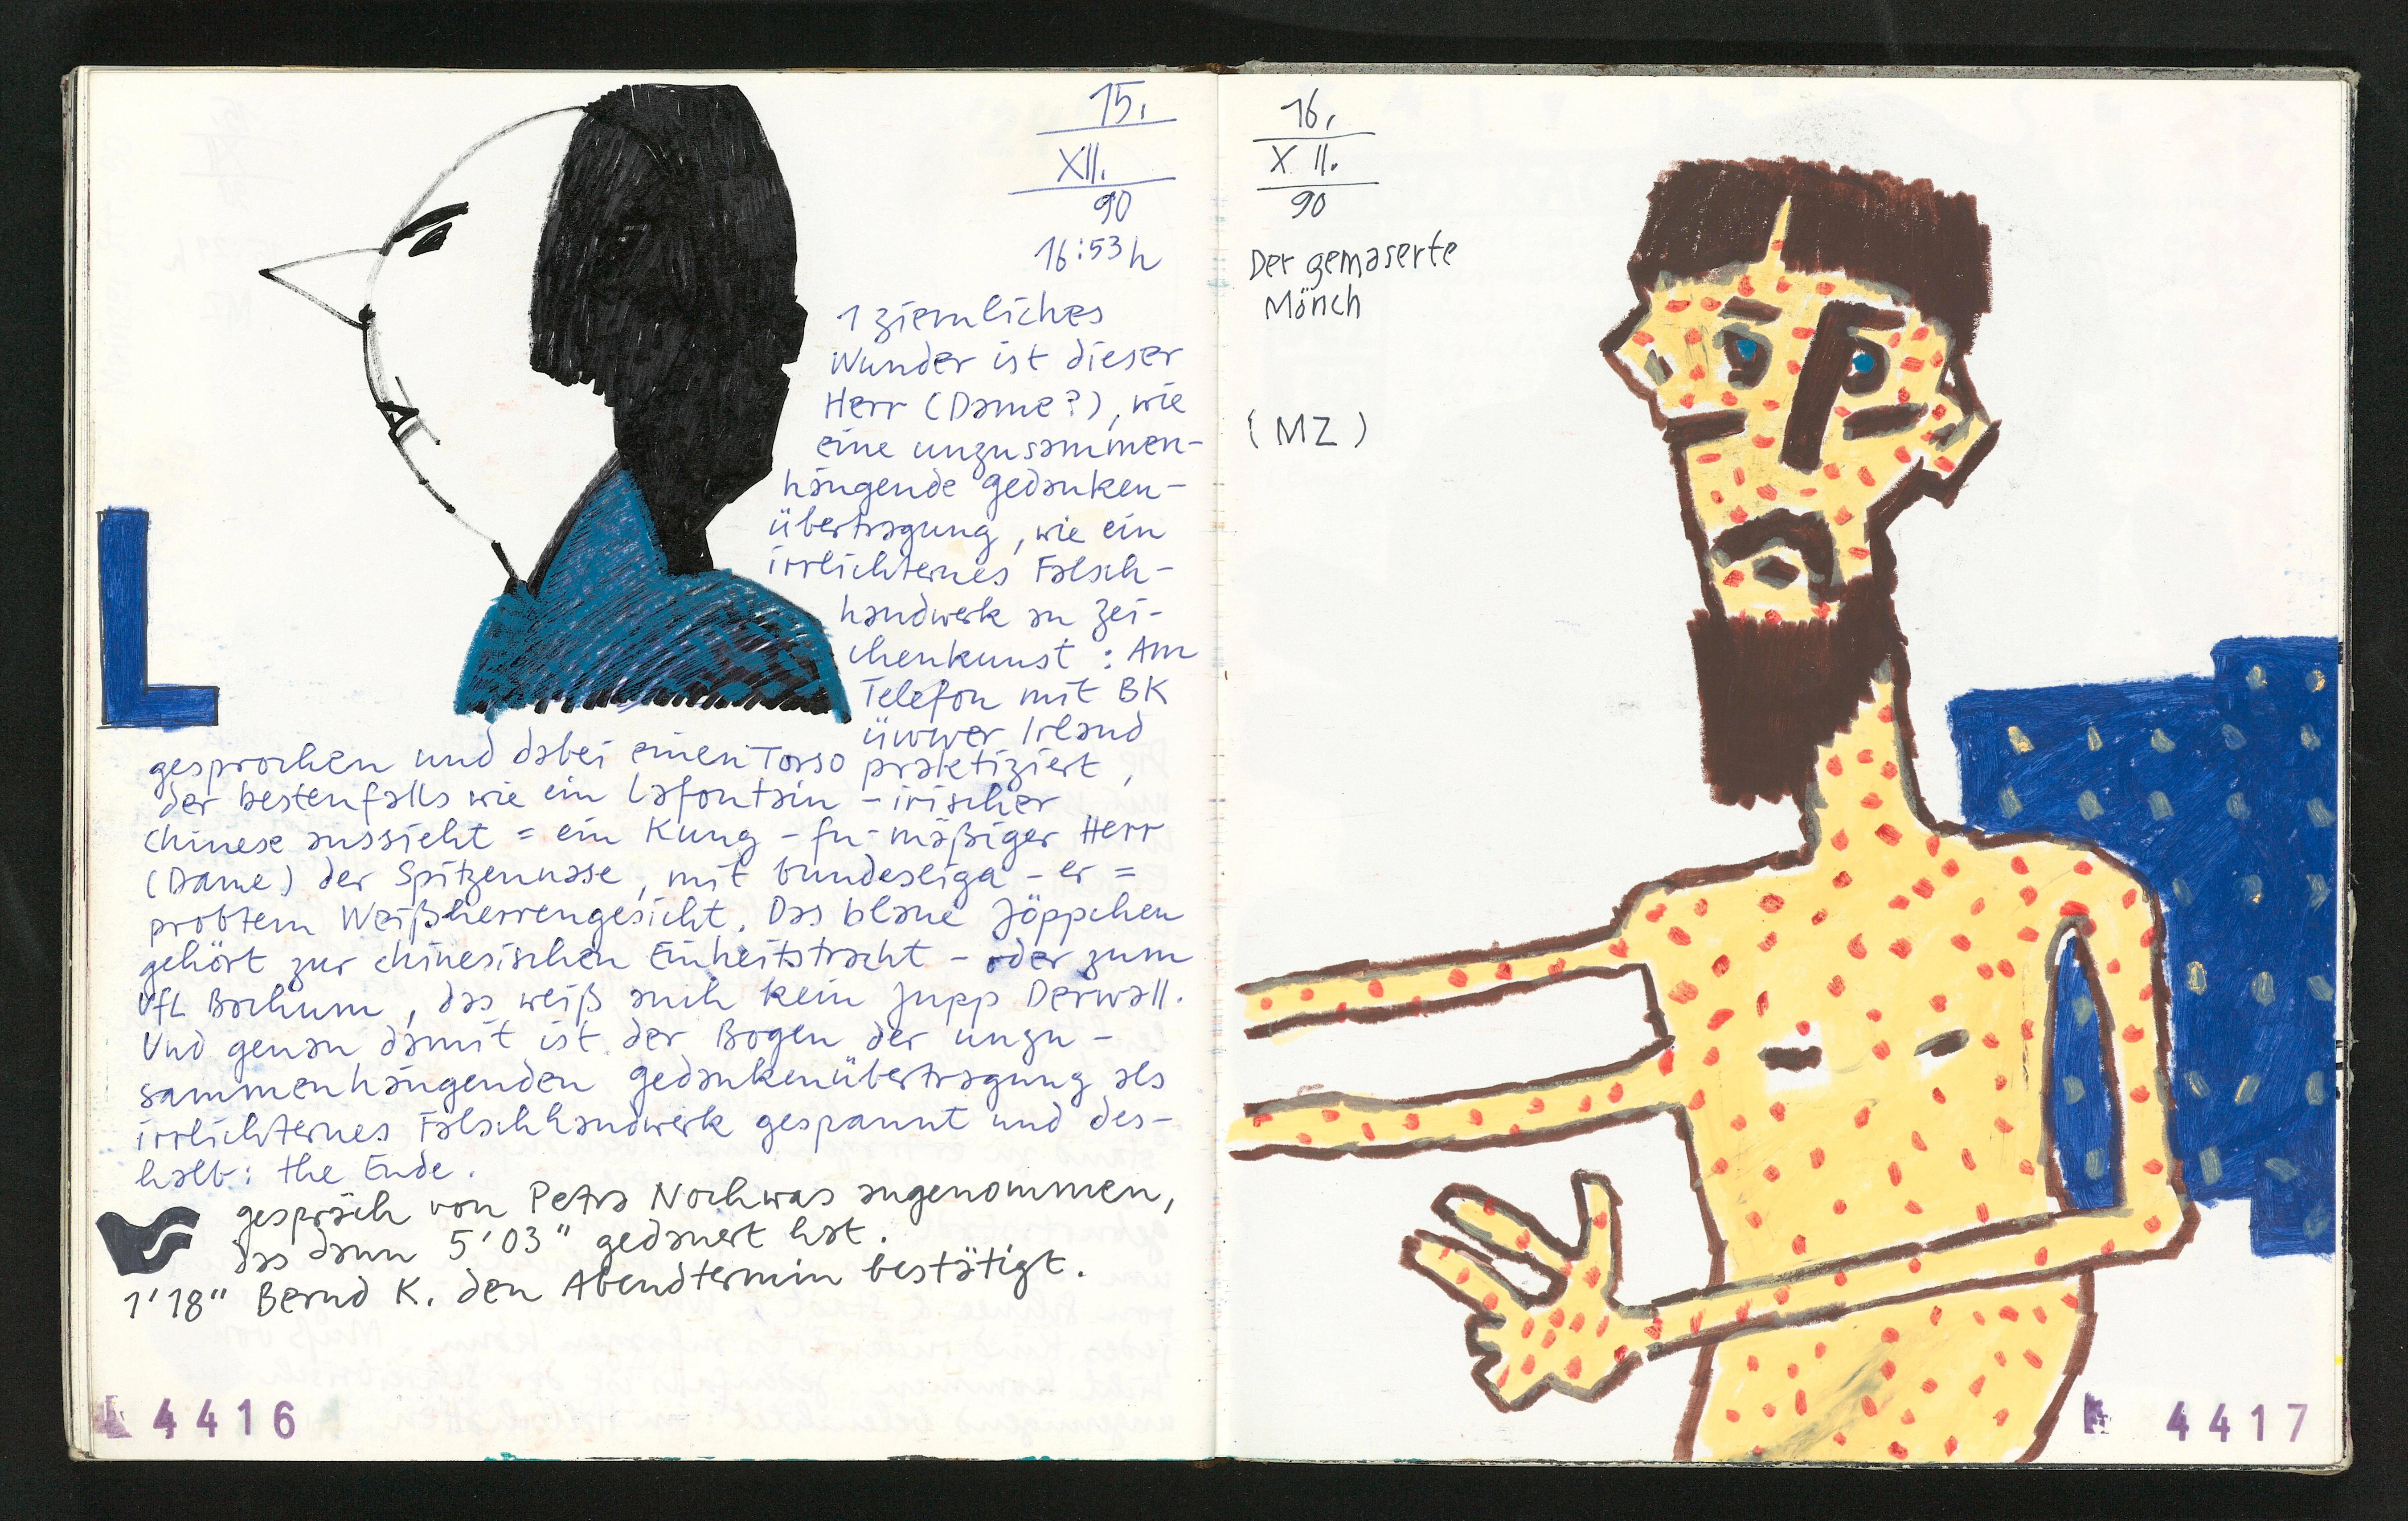 15.
XII.
90
16:53 h
1 ziemliches
Wunder ist dieser
Herr (Dame?), wie
eine unzusammen-
hängende gedanken-
übertragung, wie ein
irrlichternes Falsch-
handwerk an Zei-
chenkunst : Am
Telefon mit BK
üwwer Irland
gesprochen und dabei einen Torso praktiziert,
der bestenfalls wie ein Lafontain - irischer
Chinese aussieht = ein Kung - fu - mäßiger Herr
(Dame) der Spitzennase, mit bundesliga - er =
probtem Weißherrengesicht. Das blaue Jöppchen
gehört zur chinesischen Einheitstracht - oder zum
VfL Bochum, das weiß auch kein Jupp Derwall.
Und genau damit ist der Bogen der unzu -
sammenhängenden gedankenübertragung als
irrlichternes Falschhandwerk gespannt und des-
halb : the Ende.
gespräch von Petra Nochwas angenommen,
das dann 5'03" gedauert hat.
1'18" Bernd K. den Abendtermin bestätigt.
L
4416
16.
XII.
90
Der gemaserte
Mönch
(MZ)
4417